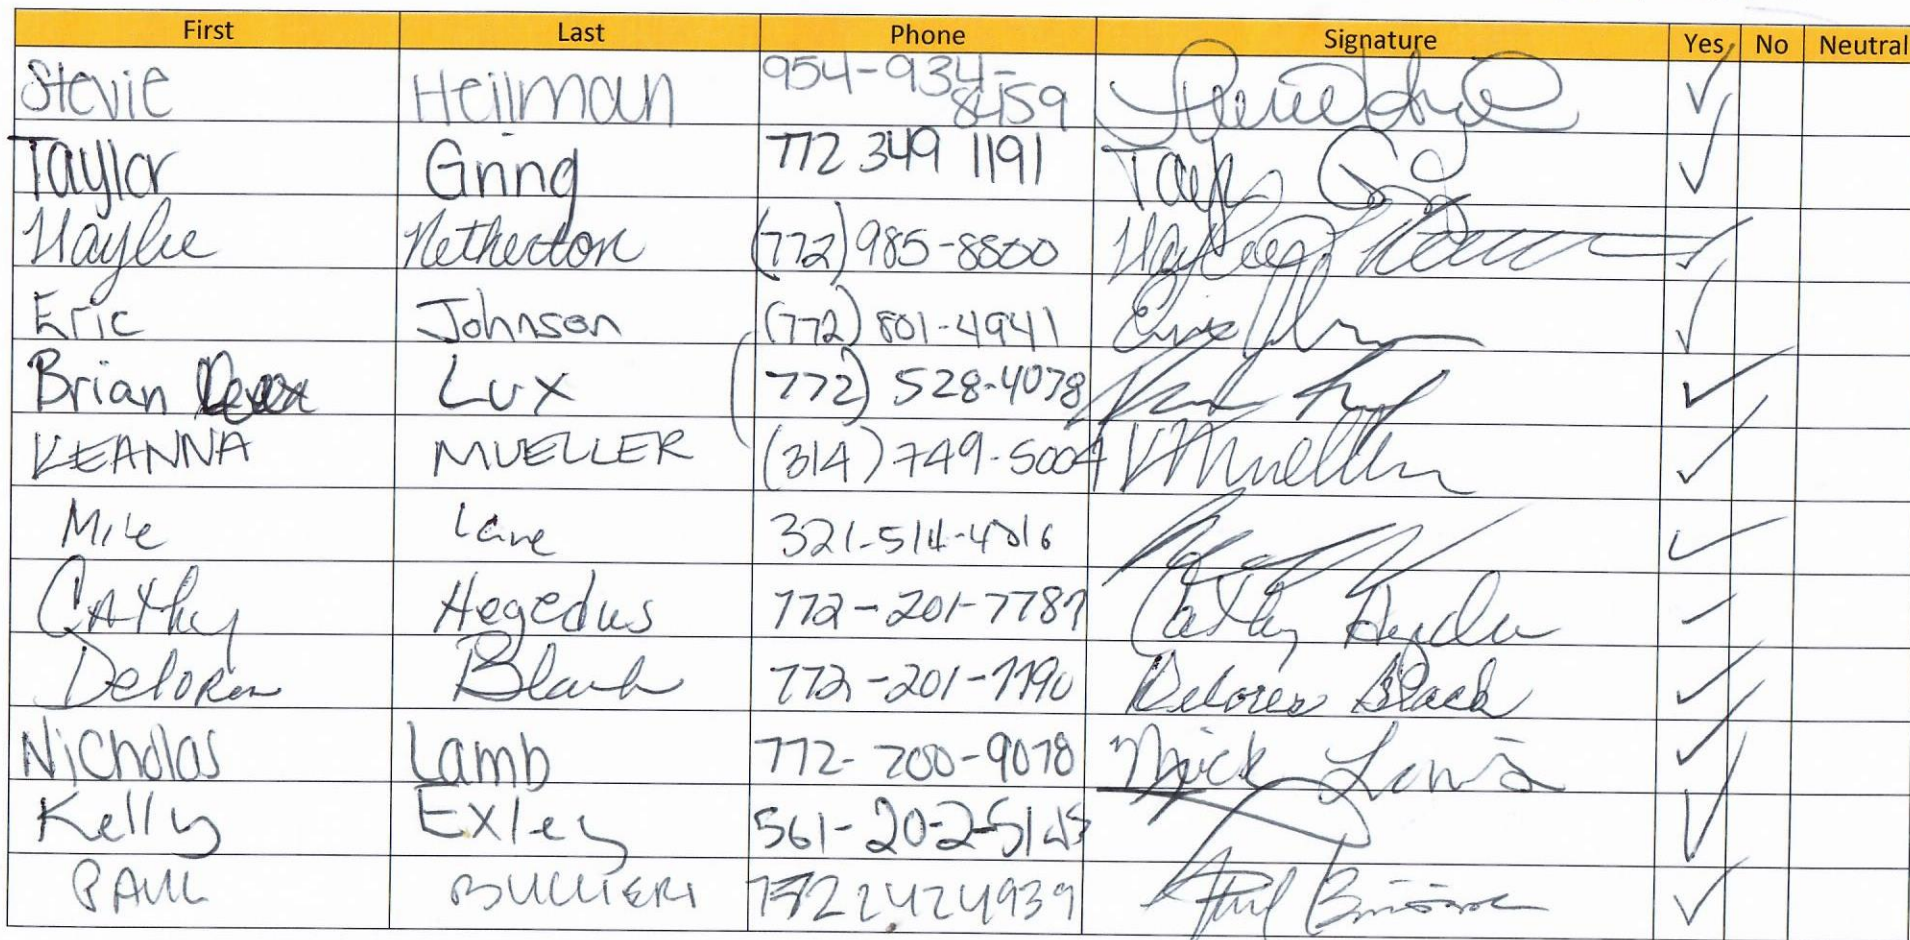 First Last Phone Signature Yes No Neutral
Stevie Heilman 954-934-8459
Taylor Gring 772 349 1191 Tayl
Haylie Netherton (772) 985-8800
Eric Johnson (772) 801-4941
Brian Lux (772) 528-4078
KEANNA MUELLER (314) 749-5004 KMueller
Mike Lane 321-514-4016
CAthy Hegedus 772-201-7787 Cathy
Delores Black 772-201-7790 Delores Black
Nicholas Lamb 772-200-9078 Nick
Kelly Exley 561-202-51
PAUL 772 242 4939